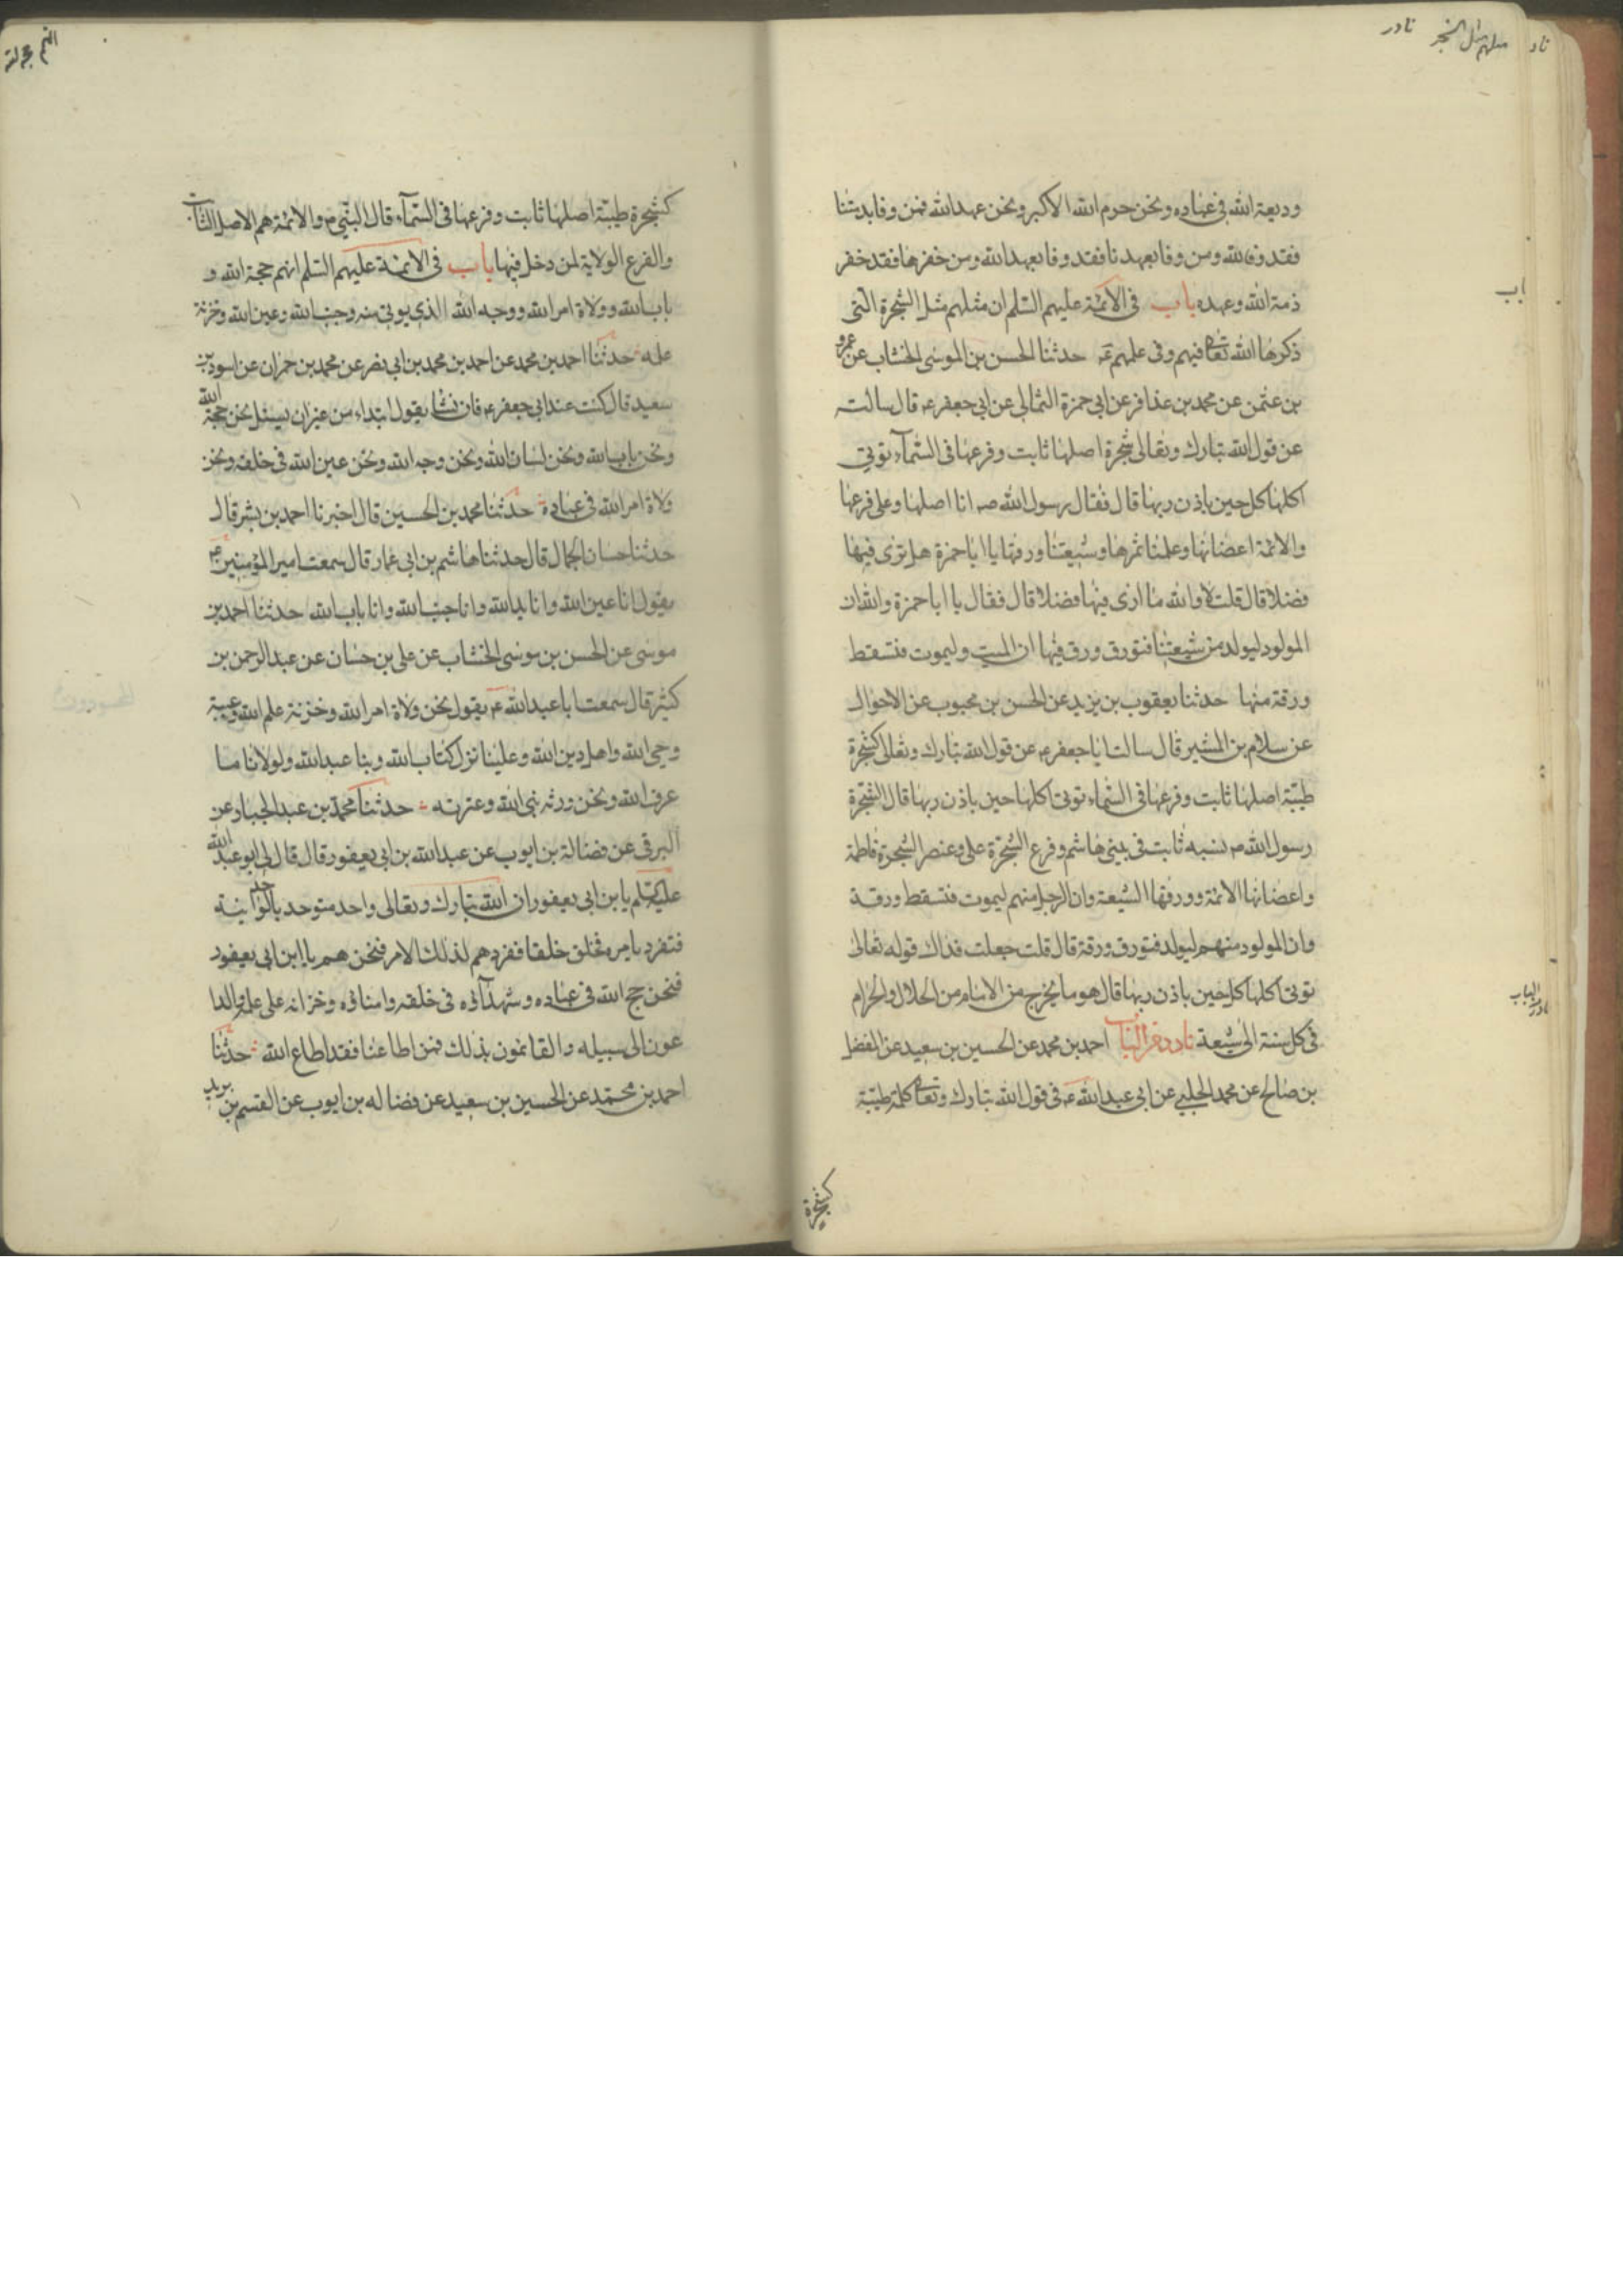 ناد مثلهم مثل الشجر نادر
وديعة الله في عباده ونحن حرم الله الاكبر ونحن عهد الله فمن وفا بذمتنا
فقد وفا لله ومن وفا بعهدنا فقد وفا بعهد الله ومن خفرها فقد خفر
ذمة الله وعهده باب في الائمة عليهم السلم ان مثلهم مثل الشجرة التى
باب
ذكرها الله تعا فيهم وفى علمهم عه حدثنا الحسن بن الموسى الخشاب عن عمرو
بن عثمن عن محمد بن عذافر عن ابى حمزة الثمالى عن ابى جعفر ع قال سالته
عن قول الله تبارك وتعالى شجرة اصلها ثابت وفرعها فى السمآء توتى
اكلها كل حين باذن ربها قال فقال رسول الله ص انا اصلها وعلى فرعها
والائمة اعضانها وعلمنا ثمرها وشيعتنا ورقها يا ابا حمزة هل ترى فيها
فضلا قال قلت لا والله ما ارى فيها فضلا قال فقال يا ابا حمزة والله ان
المولود ليولد من شيعتنا فتورق ورق فيها ان الميت وليموت فتسقط
ورقة منها حدثنا يعقوب بن يزيد عن الحسن بن محبوب عن الاحوال
عن سلام بن المستير قال سالت ابا جعفر ع عن قول الله تبارك وتعالى كشجرة
طيبة اصلها ثابت وفرعها فى السماء توتى اكلها حين باذن ربها قال الشجرة
رسول الله ص نسبه ثابت فى بينى هاشم وفرع الشجرة على وعنصر الشجرة فاطمة
واعضانها الائمة وورقها الشيعة وان الرجل منهم ليموت فتسقط ورقة
وان المولود منهم ليولد فتورق ورقة قال قلت جعلت فداك قوله تعالى
توتى اكلها كل حين باذن ربها قال هو ما يخرج من الامام من الحلال والحرام
نادر من الباب
فى كل سنة الى شيعة نادر من الباب احمد بن محمد عن الحسين بن سعيد عن المفضل
بن صالح عن محمد الحلبى عن ابى عبد الله ع فى قول الله تبارك وتعا كلمة طيبة
كشجرة
انهم حجة الله
كشجرة طيبة اصلها ثابت وفرعها فى السمآء قال النبى ص والائمة هم الاصل الثابت
والفرع الولاية لمن دخل فيها باب فى الائمة عليهم السلم انهم حجة الله و
باب الله وولاة امر الله ووجه الله الذى يوتى منه وجنب الله وعين الله وخزنة
علمه حدثنا احمد بن محمد عن احمد بن محمد بن ابى نصر عن محمد بن حمران عن اسود بن
سعيد قال كنت عند ابى جعفر ع فانشا يقول ابتداء من غير ان يسئل نحن حجة الله
ونحن باب الله ونحن لسان الله ونحن وجه الله ونحن عين الله فى خلقه ونحن
ولاة امر الله فى عباده حدثنا محمد بن الحسين قال اخبرنا احمد بن بشر قال
حدثنا حسان الجمال قال حدثنا هاشم بن ابى عمار قال سمعت امير المؤمنين ع
يقول انا عين الله وانا يد الله وانا جنب الله وانا باب الله حدثنا احمد بن
موسى عن الحسن بن موسى الخشاب عن على بن حسان عن عبد الرحمن بن
كثير قال سمعت ابا عبد الله ع يقول نحن ولاة امر الله وخزنة علم الله وعيبة
وحى الله واهل دين الله وعلينا نزل كتاب الله وبنا عبد الله ولولانا ما
عرف الله ونحن ورثه نبى الله وعترته حدثنا محمد بن عبد الجبار عن
البرقى عن فضالة بن ايوب عن عبد الله بن ابى يعفور قال قال لى ابو عبد الله
عليه السلم يا بن ابى يعفور ان الله تبارك وتعالى واحد متوحد بالوحدانية
فتفرد بامره فخلق خلقا ففردهم لذلك الامر فنحن هم يا ابن ابى يعفور
فنحن حجج الله فى عباده وشهدآئه فى خلقه وامنائه وخزانه على علمه والدا
عون الى سبيله والقائمون بذلك فمن اطاعنا فقد اطاع الله حدثنا
احمد بن محمد عن الحسين بن سعيد عن فضاله بن ايوب عن القسم بن بريد